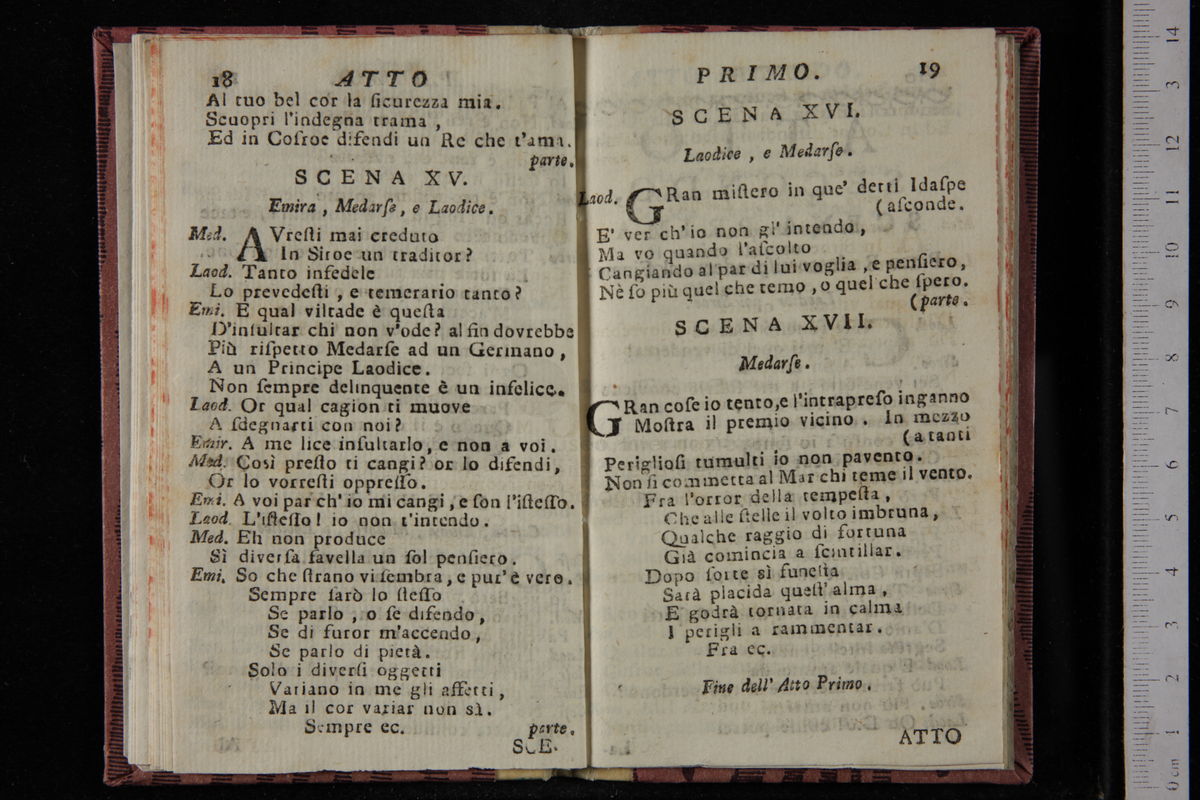 18 ATTO
Al tuo bel cor la ſicurezza mia.
Scuopri l'indegna trama ,
Ed in Coſroe difendi un Re che t'ama.
parte.
SCENA XV.
Emira , Medarſe , e Laodice .
Med. AVreſti mai creduto
In Siroe un traditor ?
Laod. Tanto infedele
Lo prevedeſti , e temerario tanto ?
Emi. E qual viltade è queſta
D'inſultar chi non v'ode? al fin dovrebbe
Più riſpetto Medarſe ad un Germano ,
A un Principe Laodice .
Non ſempre delinquente è un infelice.
Laod. Or qual cagion ti muove
A ſdegnarti con noi ?
Emir. A me lice inſultarlo , e non a voi .
Med. Così preſto ti cangi? or lo difendi,
Or lo vorreſti oppreſſo.
Emi. A voi par ch' io mi cangi , e ſon l'iſteſſo.
Laod. L'iſteſſo ! io non t'intendo .
Med. Eh non produce
Sì diverſa favella un ſol penſiero .
Emi. So che ſtrano vi ſembra , e pur' è vero .
Sempre ſarò lo ſteſſo
Se parlo , o ſe difendo ,
Se di furor m'accendo ,
Se parlo di pietà .
Solo i diverſi oggetti
Variano in me gli affetti ,
Ma il cor variar non sì .
Sempre ec. parte.
SCE-
PRIMO. 19
SCENA XVI.
Laodice , e Medarſe .
Laod. GRan miſtero in que' detti Idaſpe
(aſconde.
E' ver ch' io non gl' intendo ,
Ma vo quando l'aſcolto
Cangiando al par di lui voglia , e penſiero ,
Nè ſo più quel che temo , o quel che ſpero.
(parte.
SCENA XVII.
Medarſe .
GRan coſe io tento, e l'intrapreſo inganno
Moſtra il premio vicino . In mezzo
(a tanti
Periglioſi tumulti io non pavento .
Non ſi commetta al Mar chi teme il vento.
Fra l'orror della tempeſta ,
Che alle ſtelle il volto imbruna ,
Qualche raggio di fortuna
Già comincia a ſcintillar .
Dopo ſorte sì funeſta
Sarà placida queſt' alma ,
E godrà tornata in calma
I perigli a rammentar .
Fra ec.
Fine dell' Atto Primo .
ATTO
14
3
12
11
10
9
8
7
6
5
4
3
2
1
0 cm